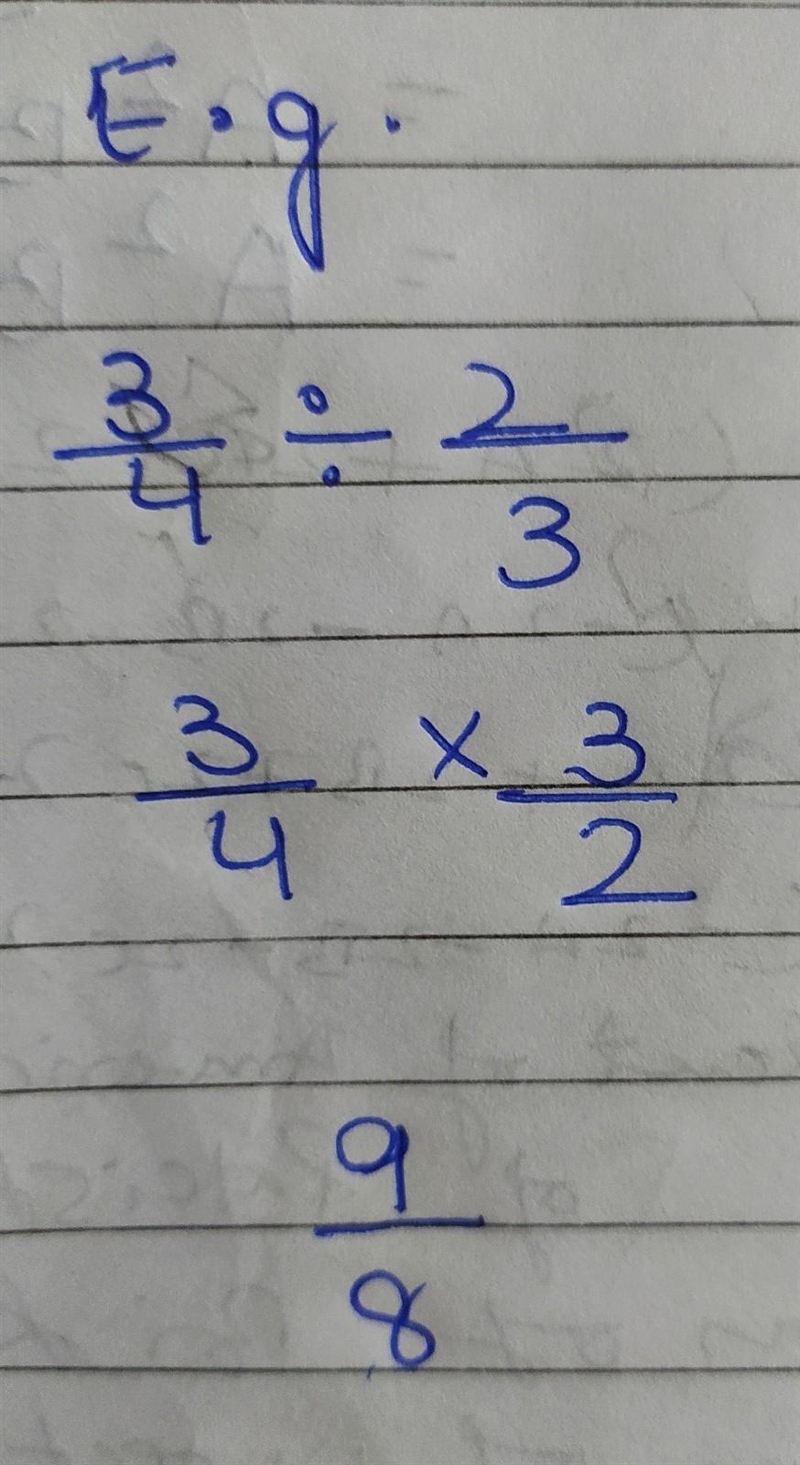 E.g.
3/4 ÷ 2/3
3/4 × 3/2
9/8